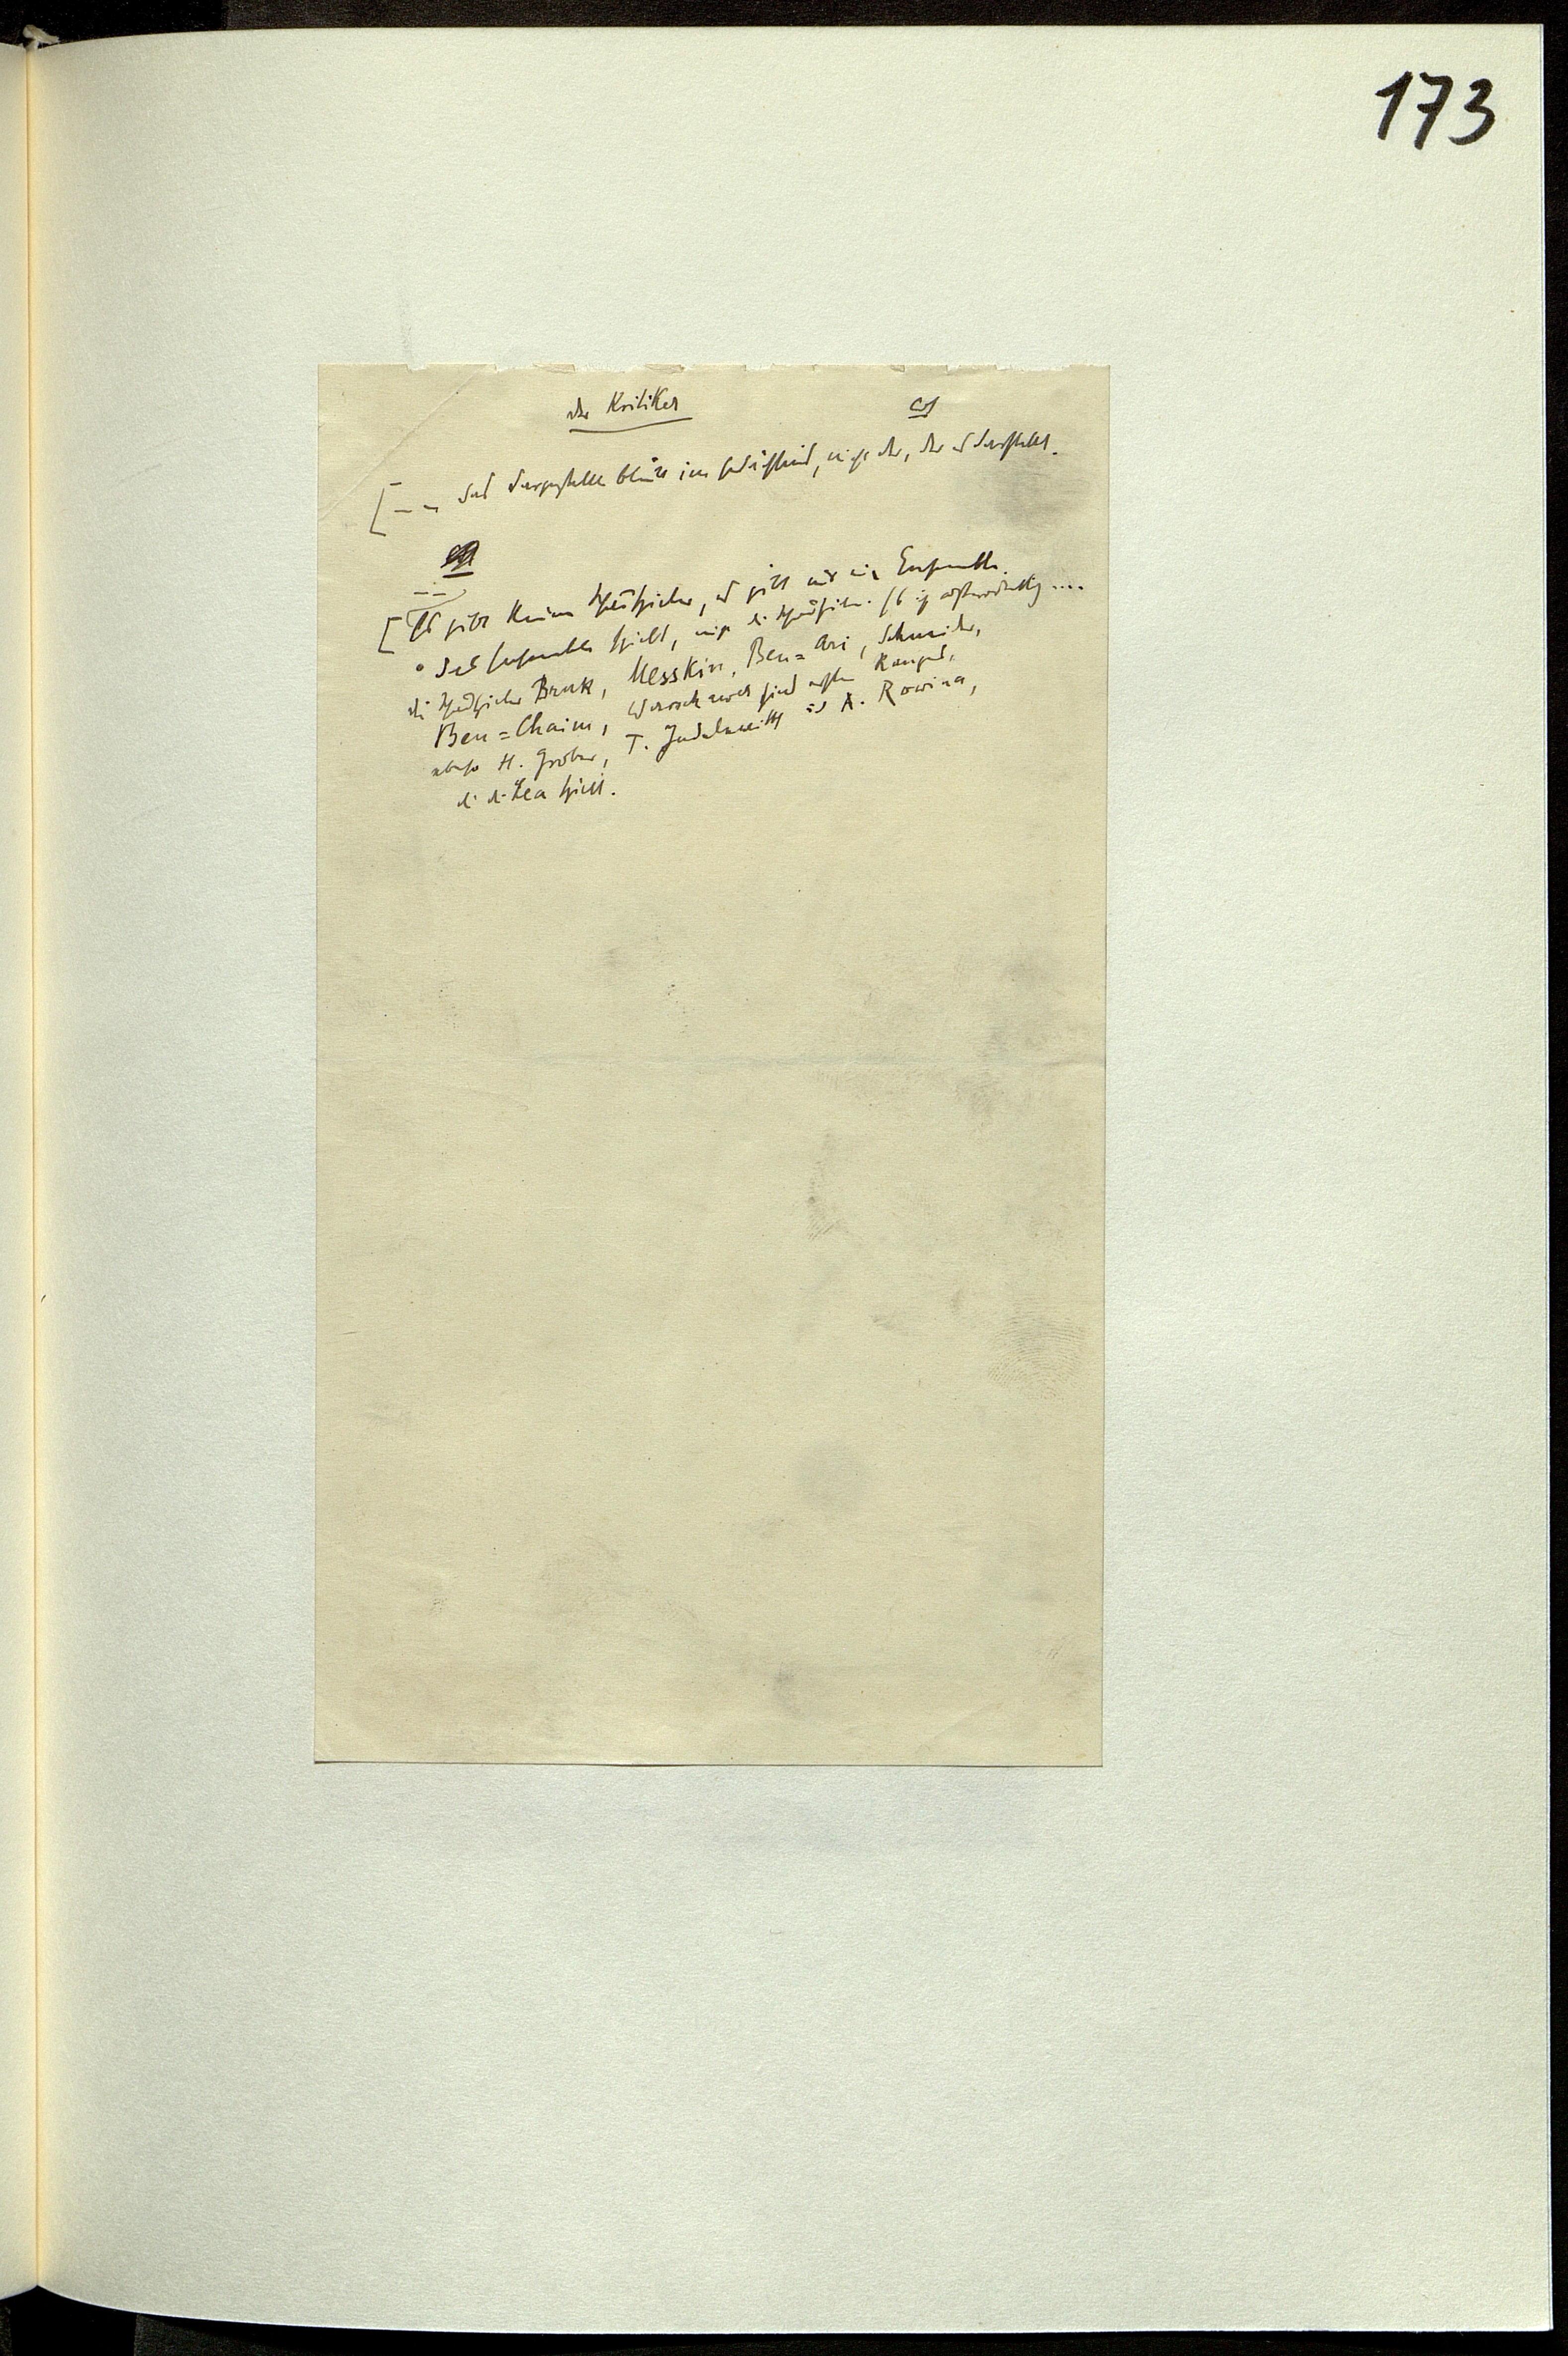 173
der Kritiker
[ — — das Dargestellte bleibt im Gedächtnis, nicht der, der es darstellt.
[ Es gibt keinen Schauspieler, es gibt nur ein Ensemble.
Das Ensemble spielt, nicht die Schauspieler. Es ist ....
die Schauspieler Bruk, Messkin, Ben=Ari, Schneider,
Ben=Chaim, Warschawer sind ersten Ranges,
ebenso H. Grober, T. Judelewitsch und A. Rowina,
die die Lea spielt.